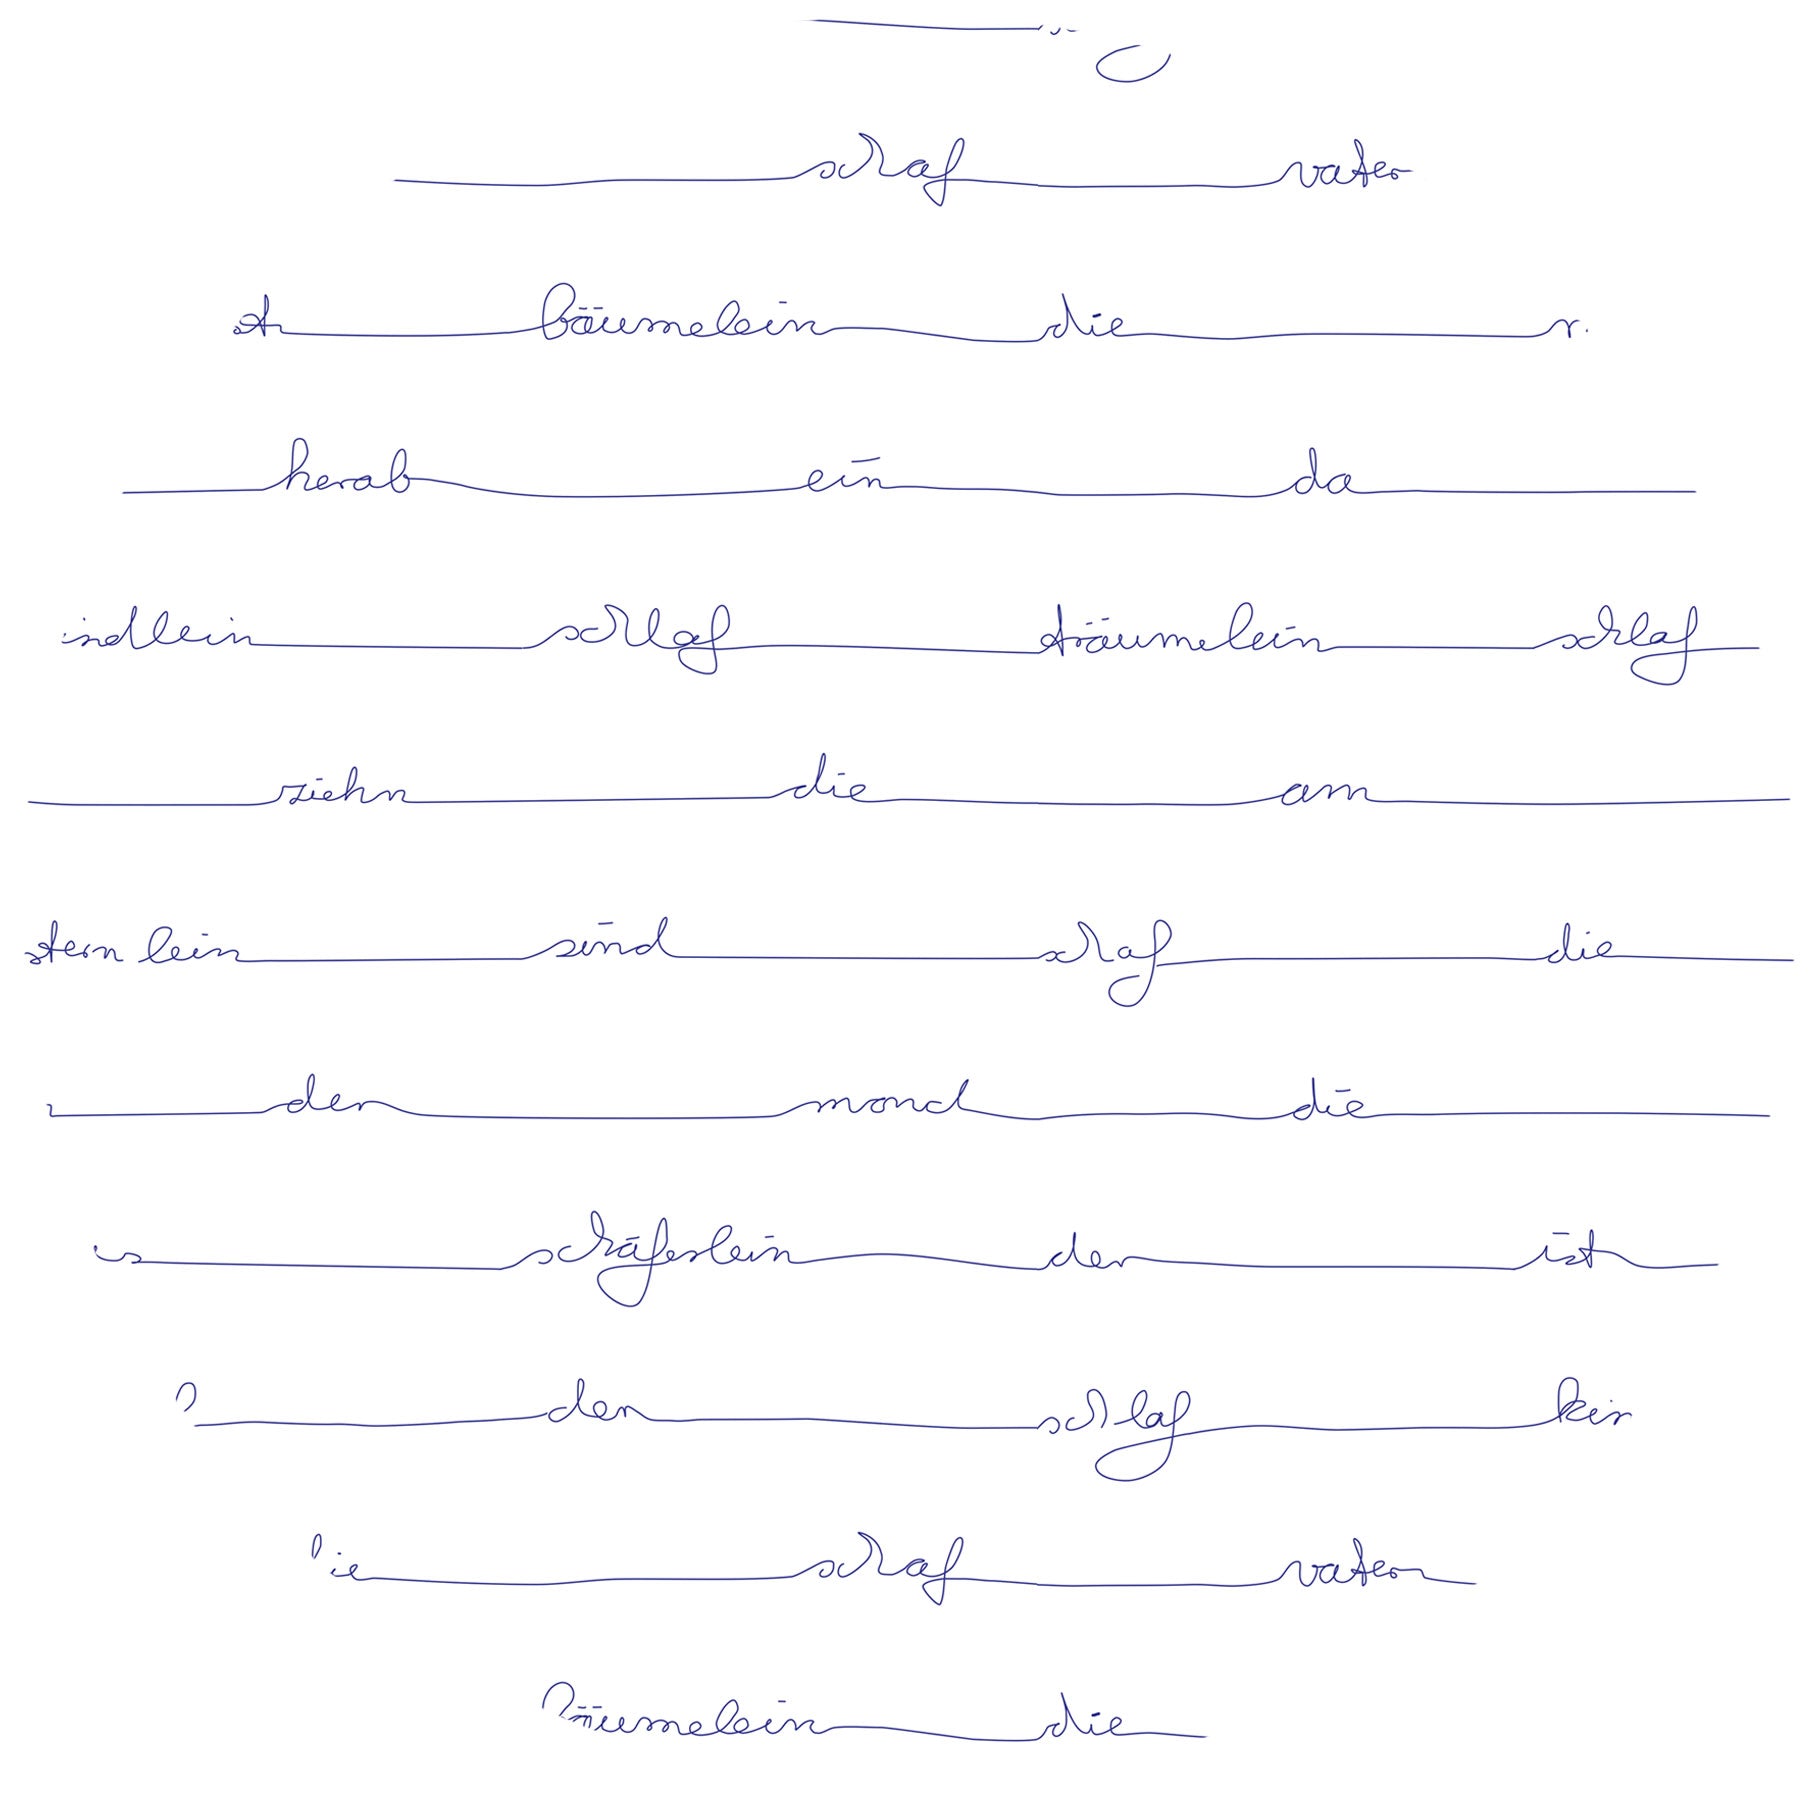 schaf vater
bäumelein die
herab ein da
schlaf träumelein schlaf
ziehn die am
sternlein sind schaf die
der mond die
schäferlein der ist
den schlaf
schaf vater
die